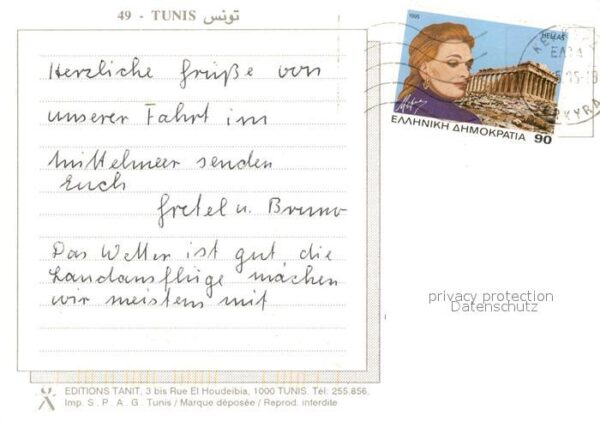 49 - TUNIS تونس
Herzliche Grüße von
unserer Fahrt im
Mittelmeer senden
Euch
Gretel u. Bruno
Das Wetter ist gut die
Landausflüge machen
wir meistens mit
1995
HELLAS
ΕΛΛΗΝΙΚΗ ΔΗΜΟΚΡΑΤΙΑ 90
privacy protection
Datenschutz
EDITIONS TANIT, 3 bis Rue El Houdeibia, 1000 TUNIS. Tél: 255.856.
Imp. S. P. A. G. Tunis / Marque déposée / Reprod. interdite